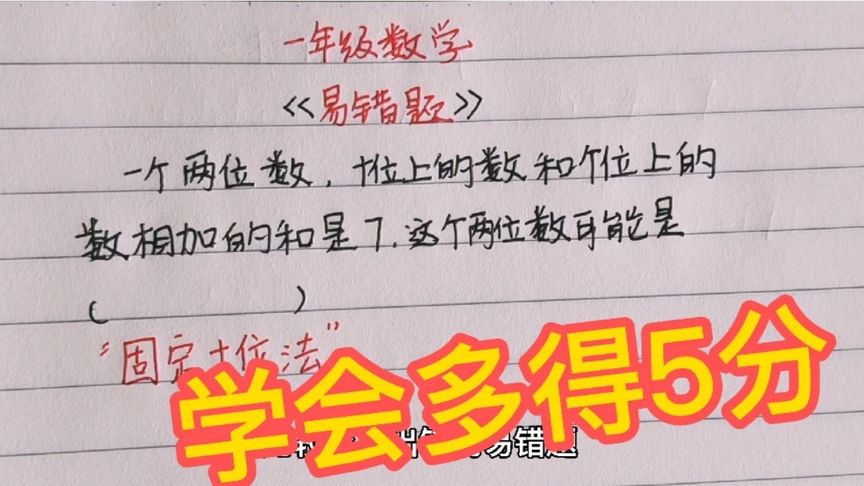 一年级数学
《易错题》
一个两位数，十位上的数和个位上的
数相加的和是7.这个两位数可能是
(          )
"固定十位法"
学会多得5分
易错题